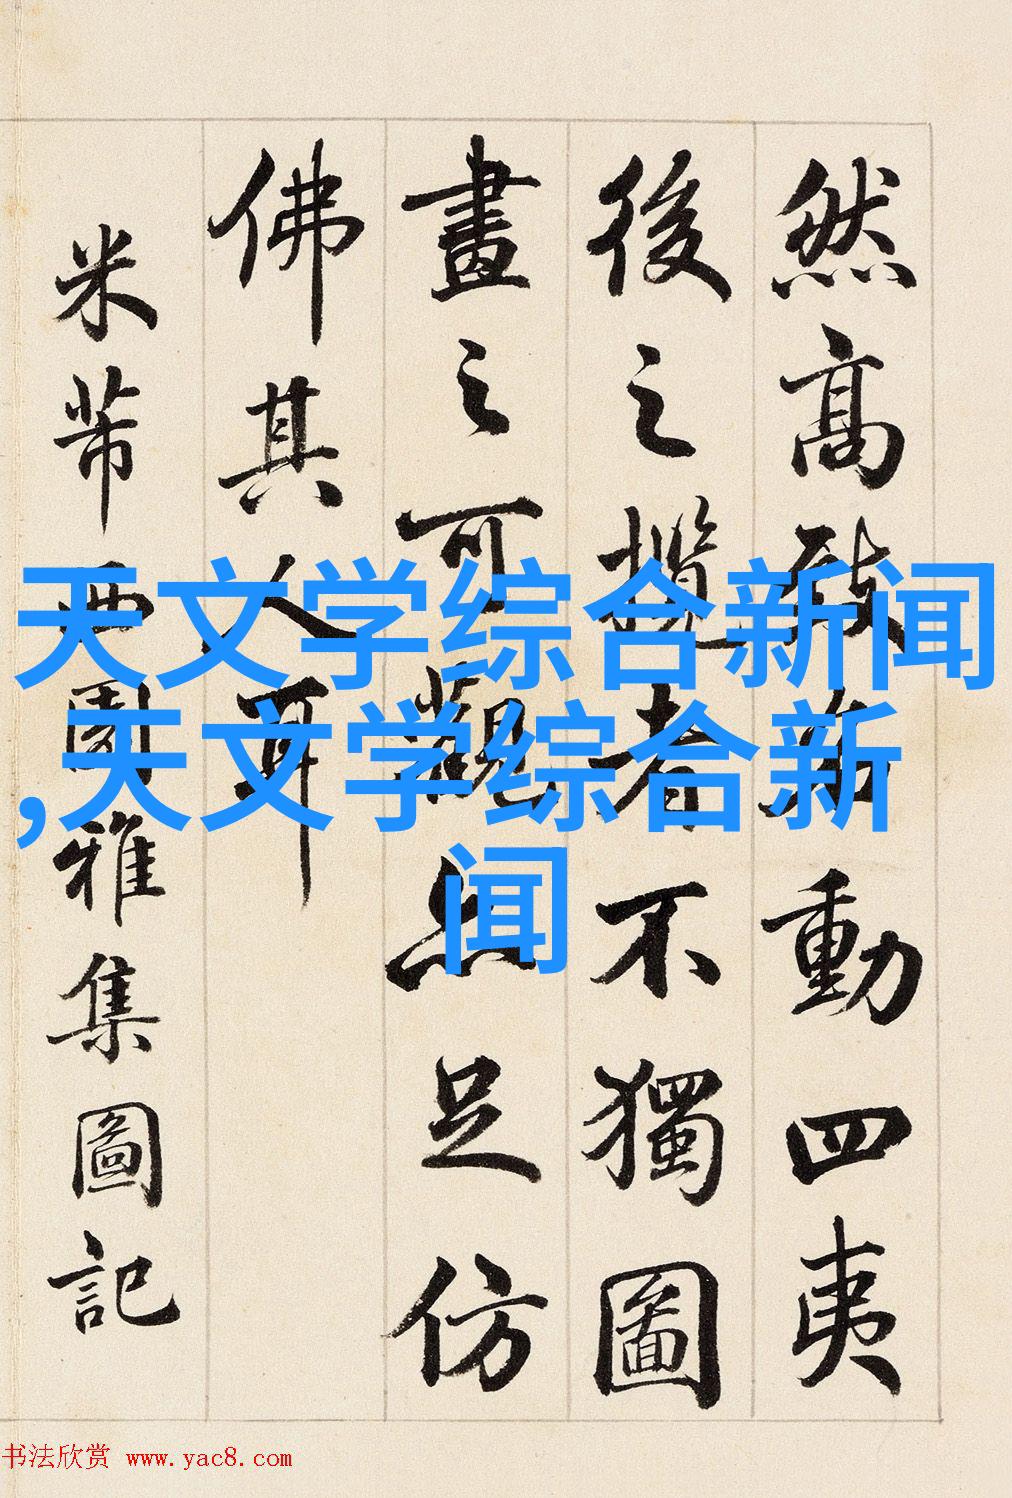 然高致名動四夷
後之攬者不獨圖
畫之可觀亦足仿
佛其人耳
米芾西園雅集圖記
天文学综合新闻
,天文学综合新
闻
书法欣赏 www.yac8.com